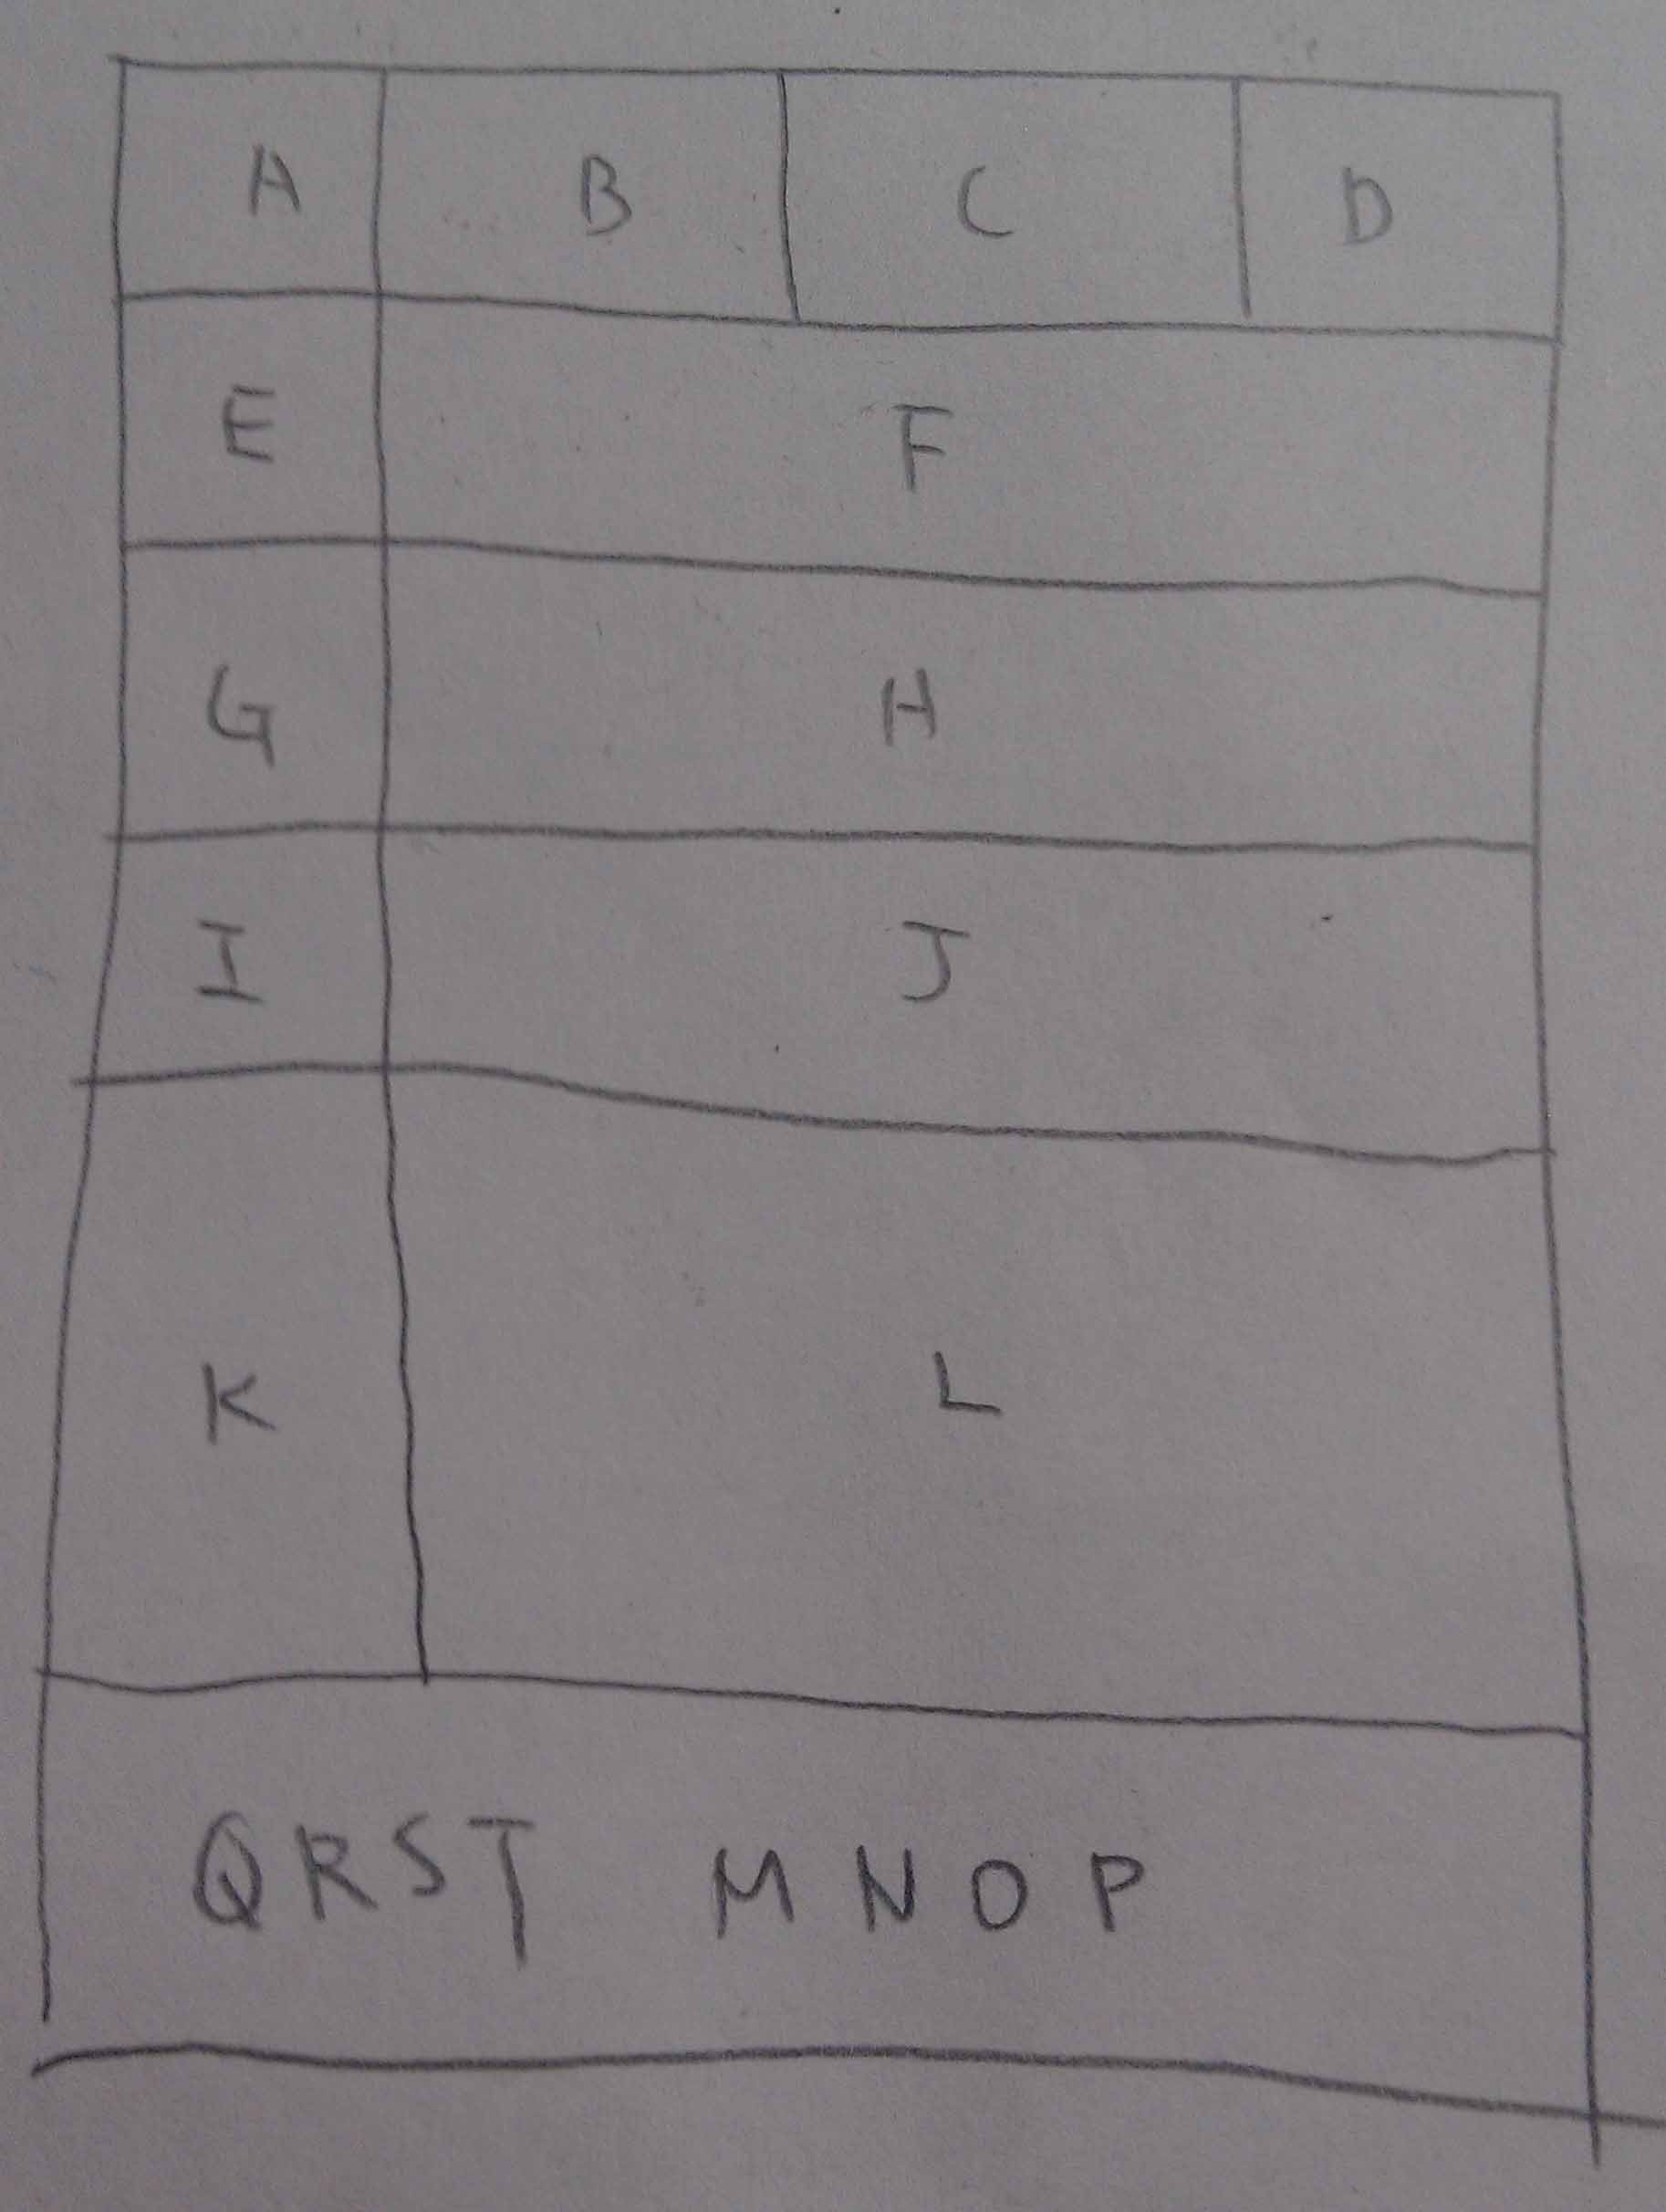 A B C D
E F
G H
I J
K L
QRST MNOP